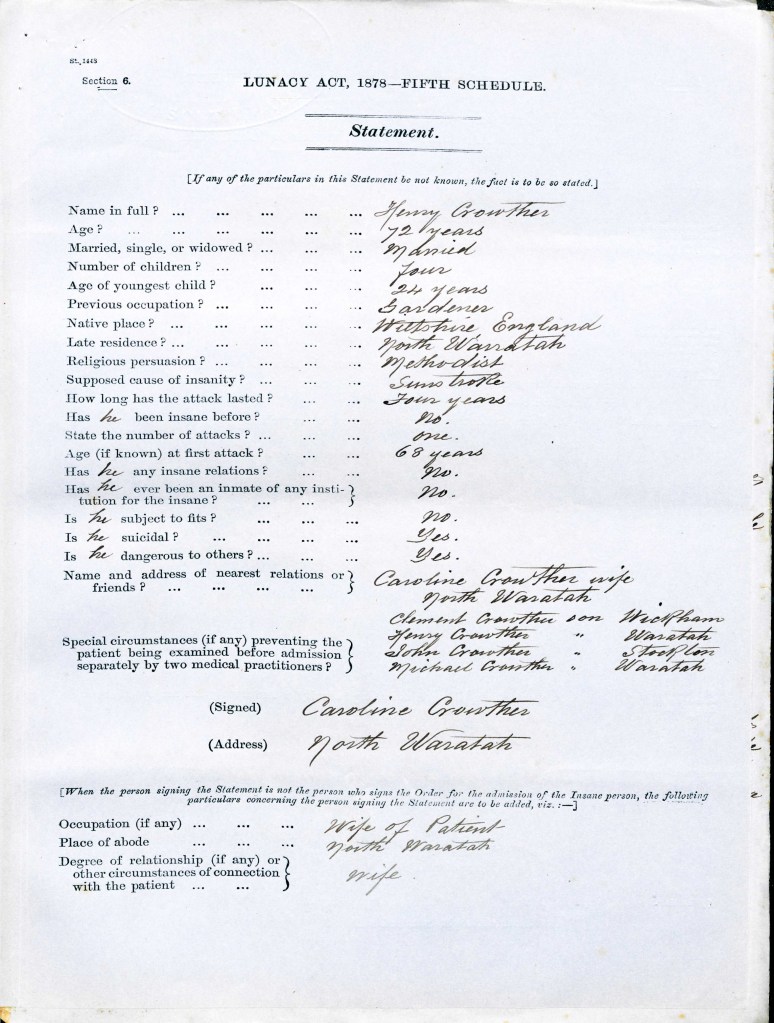 St. 1448
Section 6.
LUNACY ACT, 1878—FIFTH SCHEDULE.
Statement.
[If any of the particulars in this Statement be not known, the fact is to be so stated.]
Name in full? ... ... ... ... ... Henry Crowther
Age? ... ... ... ... ... 72 years
Married, single, or widowed? ... ... ... ... Married
Number of children? ... ... ... ... four
Age of youngest child? ... ... ... 24 years
Previous occupation? ... ... ... ... Gardener
Native place? ... ... ... ... ... Wiltshire England
Late residence? ... ... ... ... ... North Warratah
Religious persuasion? ... ... ... ... Methodist
Supposed cause of insanity? ... ... ... Sunstroke
How long has the attack lasted? ... ... Four years
Has he been insane before? ... ... No.
State the number of attacks? ... ... ... one.
Age (if known) at first attack? ... ... 68 years
Has he any insane relations? ... ... No.
Has he ever been an inmate of any insti-
tution for the insane? ... ... ... No.
Is he subject to fits? ... ... ... No.
Is he suicidal? ... ... ... ... Yes.
Is he dangerous to others? ... ... ... Yes.
Name and address of nearest relations or Caroline Crowther wife
friends? ... ... ... ... North Waratah
Clement Crowther son Wickham
Special circumstances (if any) preventing the Henry Crowther " Waratah
patient being examined before admission John Crowther " Stockton
separately by two medical practitioners? Michael Crowther " Waratah
(Signed) Caroline Crowther
(Address) North Waratah
[When the person signing the Statement is not the person who signs the Order for the admission of the Insane person, the following
particulars concerning the person signing the Statement are to be added, viz.:—]
Occupation (if any) ... ... ... Wife of Patient
Place of abode ... ... ... North Waratah
Degree of relationship (if any) or
other circumstances of connection wife.
with the patient ... ...